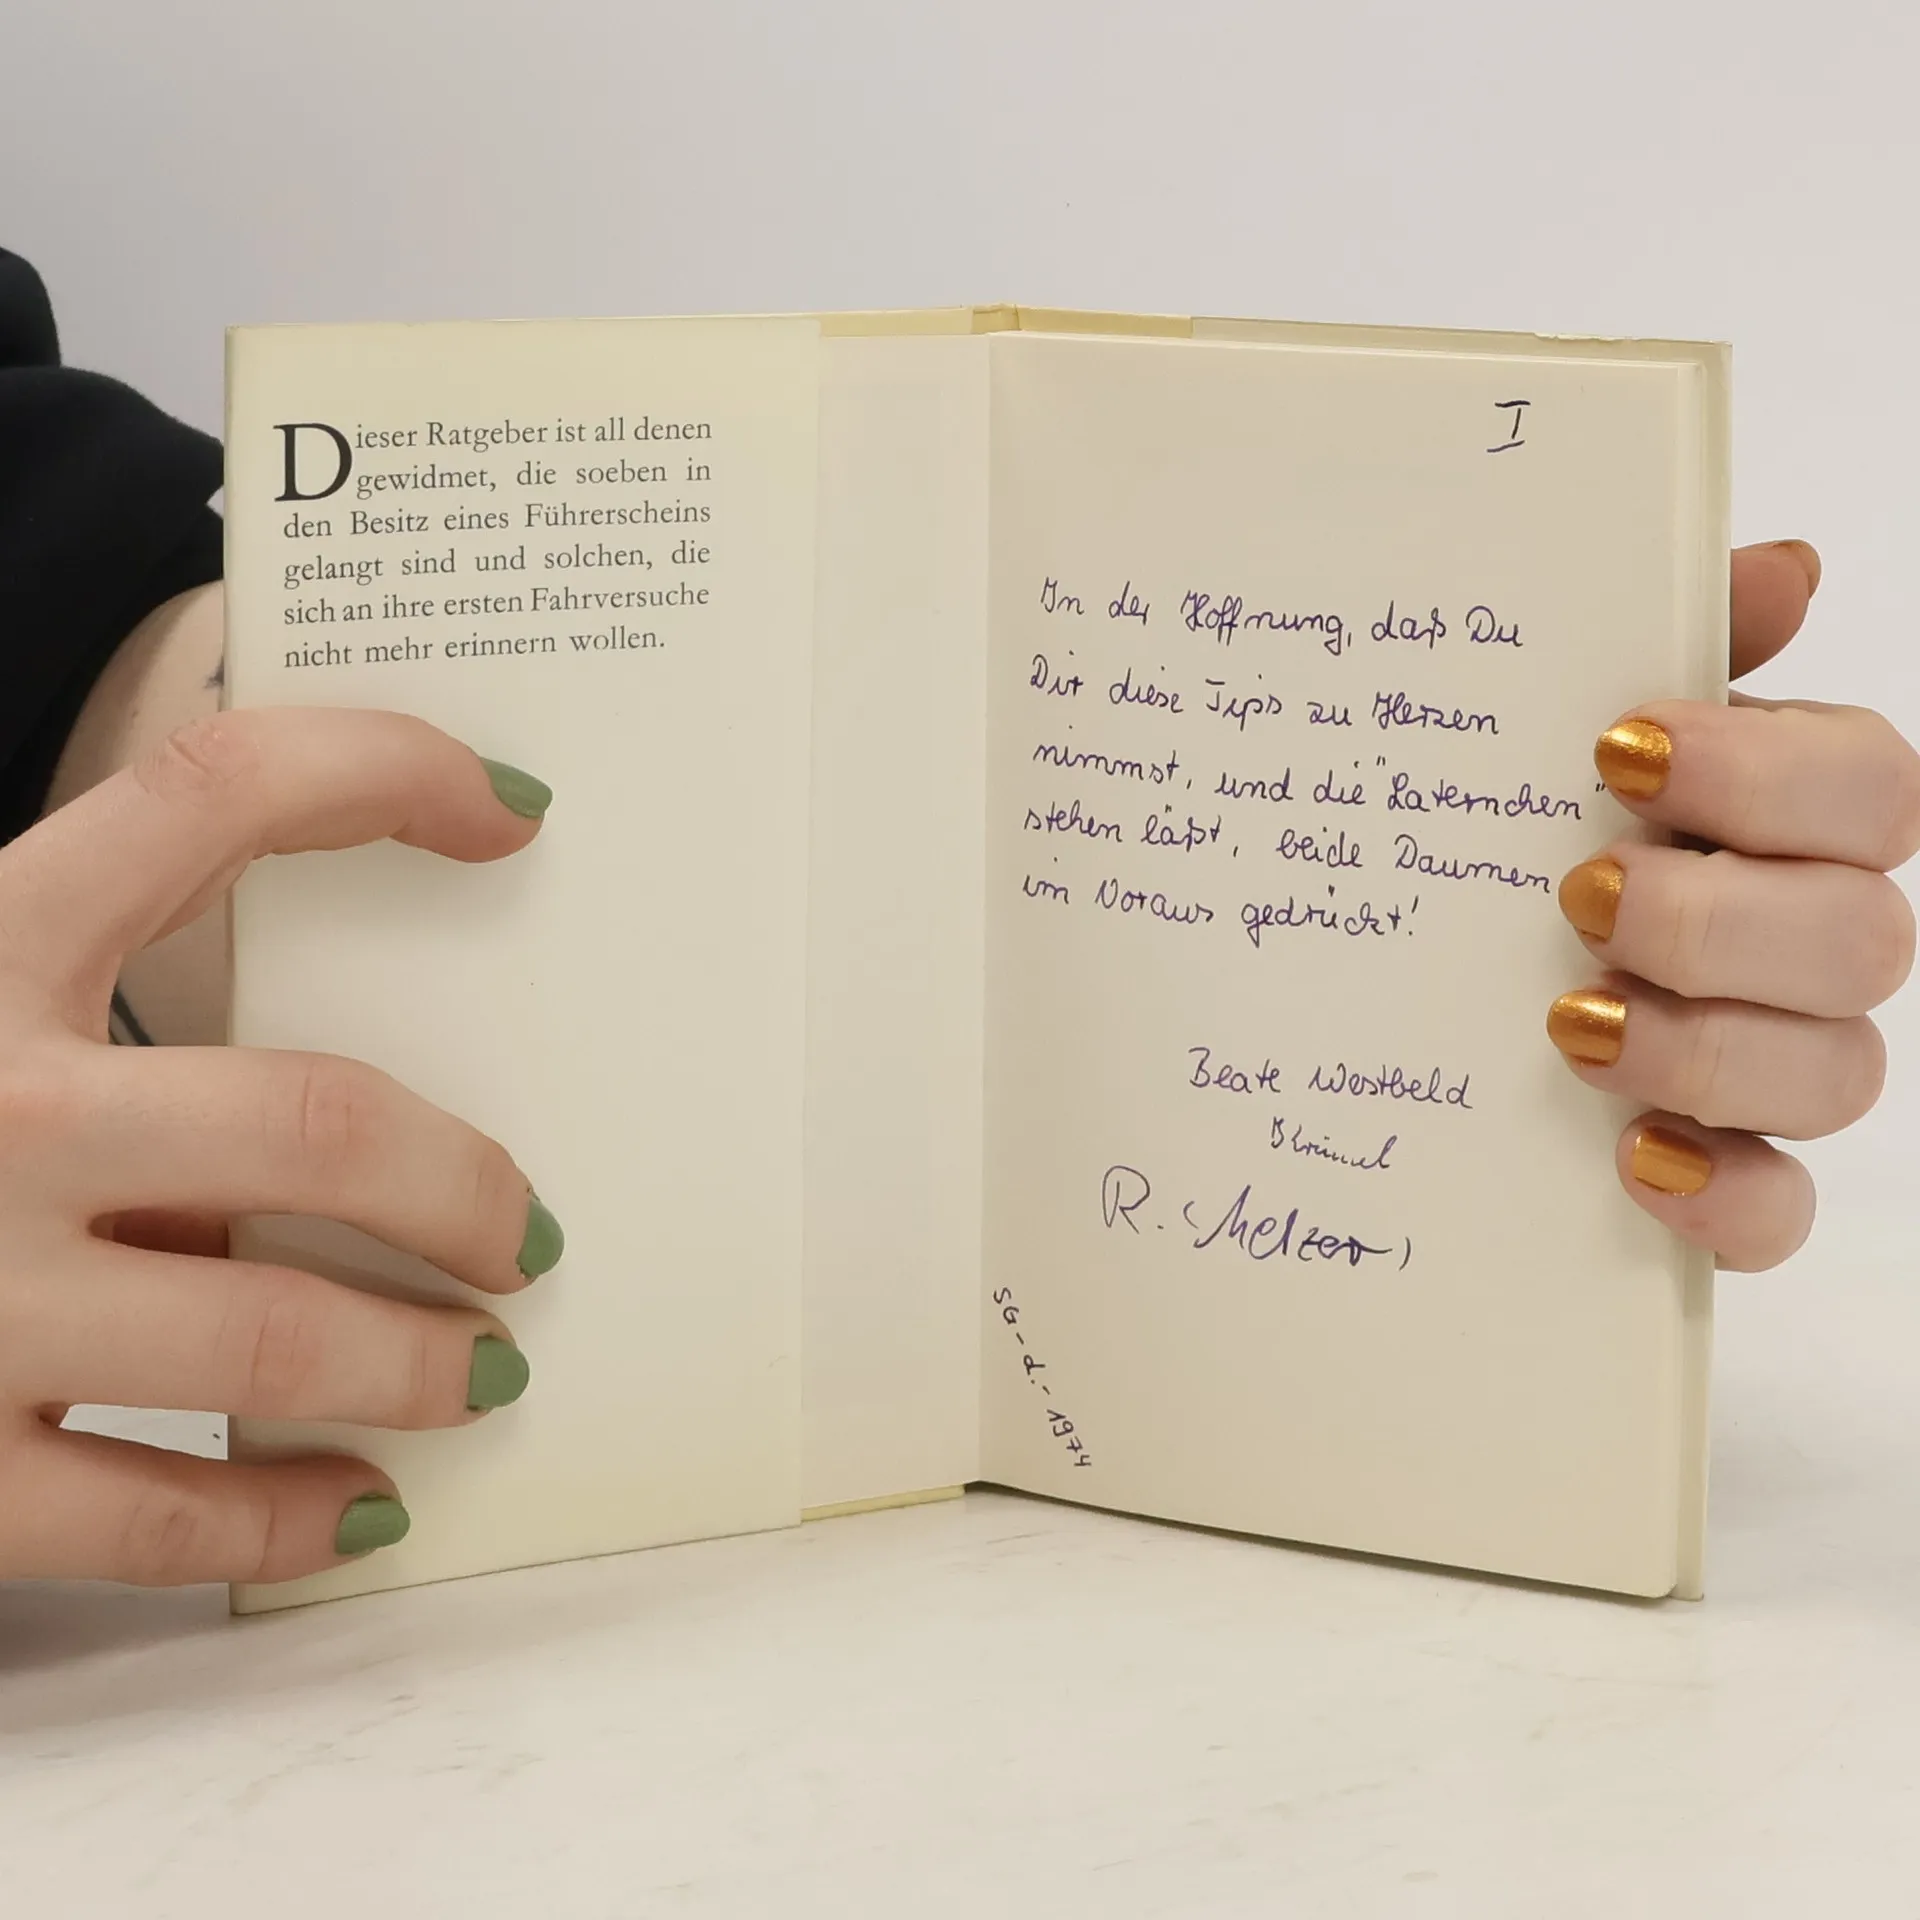 Dieser Ratgeber ist all denen
gewidmet, die soeben in
den Besitz eines Führerscheins
gelangt sind und solchen, die
sich an ihre ersten Fahrversuche
nicht mehr erinnern wollen.
I
In der Hoffnung, daß Du
Dir diese Tips zu Herzen
nimmst, und die "Laternchen"
stehen läßt, beide Daumen
im Voraus gedrückt!
Beate Westbeld
R. Melzer
SG-d.-1974